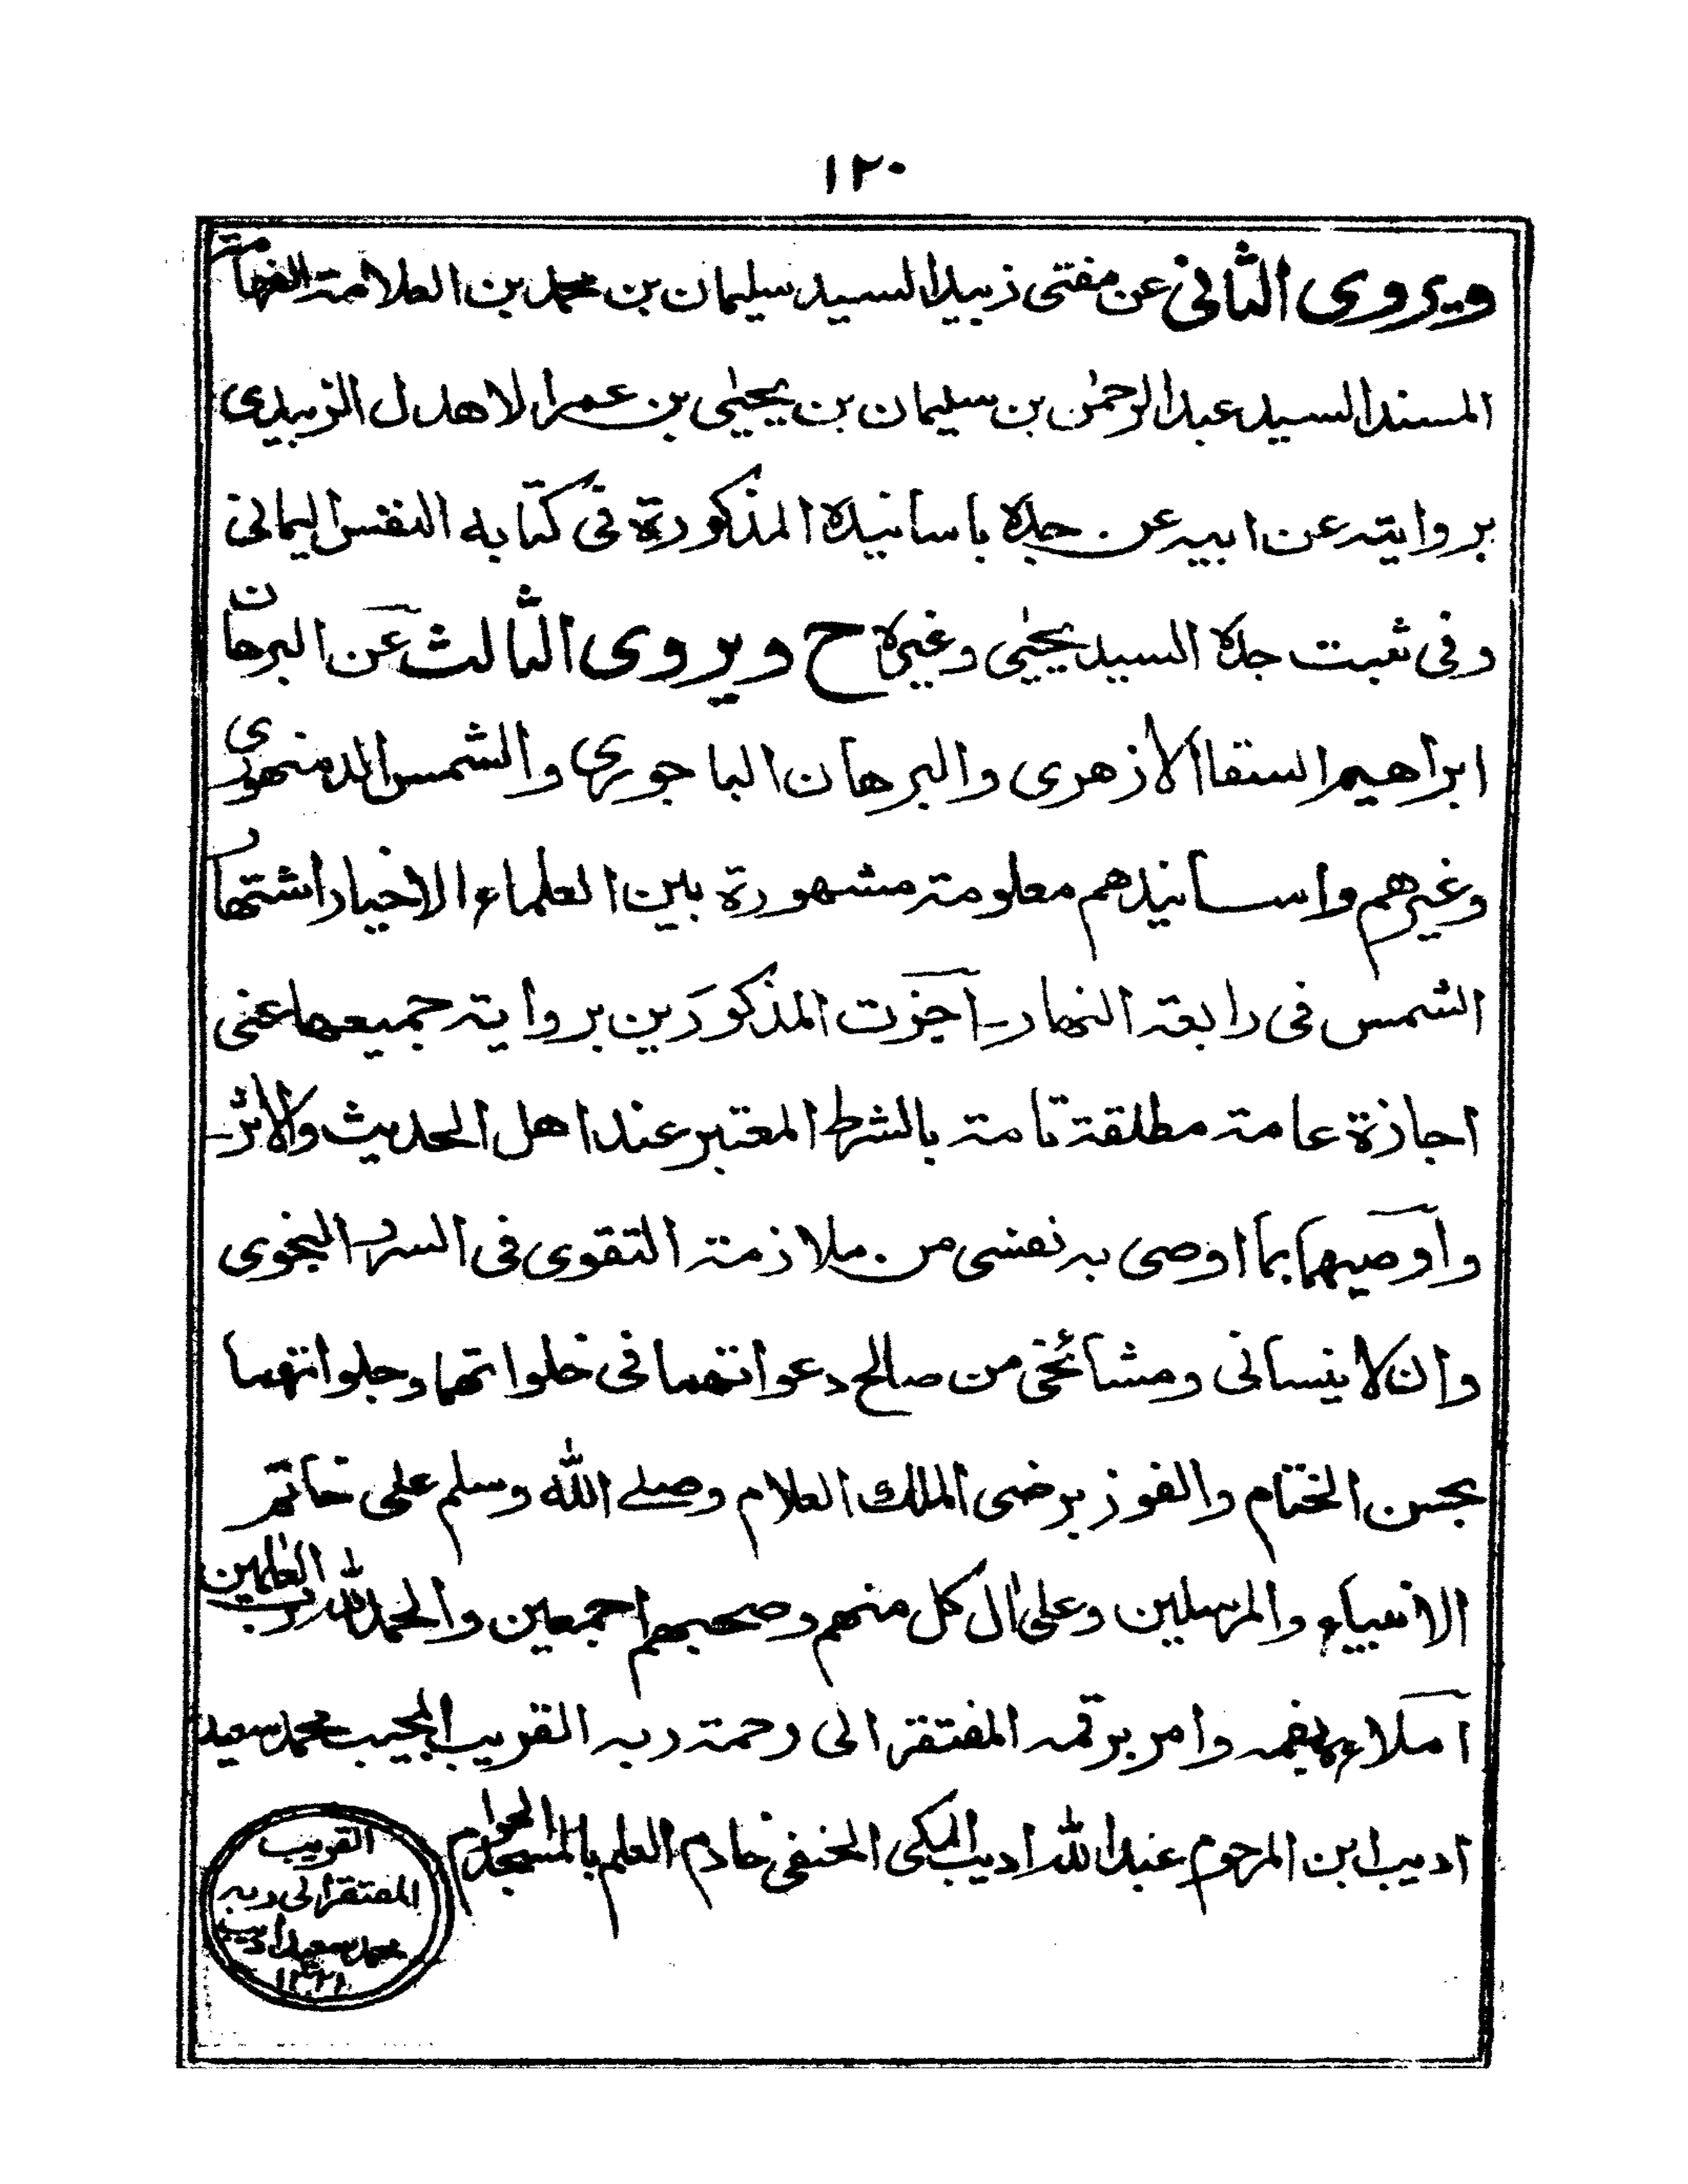 ١٢٠
ويروى الثانى عن مفتى زبيد السيد سليمان بن محمد بن العلامة الفهامة
المسند السيد عبد الرحمٰن بن سليمان بن يحيٰى بن عمر الاهدل الزبيدى
بروايته عن ابيه عن جده باسانيده المذكورة فى كتابه النفس اليمانى
وفى ثبت جده السيد يحيٰى وغيره ح ويروى الثالث عن البرهان
ابراهيم السقا الأزهرى والبرهان الباجورى والشمس الدمنهورى
وغيرهم واسانيدهم معلومة مشهورة بين العلماء الاخيار اشتهار
الشمس فى رابعة النهار ـ آجَزت المذكورَين برواية جميعها عنى
اجازة عامة مطلقة تامة بالشرط المعتبر عند اهل الحديث والأثر ـ
وآوصيهما بما اوصى به نفسى من ملازمة التقوى فى السر والنجوى
وان لا ينسانى ومشائخى من صالح دعواتهما فى خلواتهما وجلواتهما
بحسن الختام والفوز برضى الملك العلام وصلے الله وسلم على خاتم
الانبياء والمرسلين وعلى اٰل كل منهم وصحبهم اجمعين والحمد لله رب العٰلمين
آملاه بفمه وامر برقمه المفتقر الى رحمة ربه القريب المجيب محمد سعيد
اديب ابن المرحوم عبد الله اديب المكى الحنفى خادم العلم بالمسجد الحرام
القريب
المفتقر الى ربه
محمد سعيد اديب